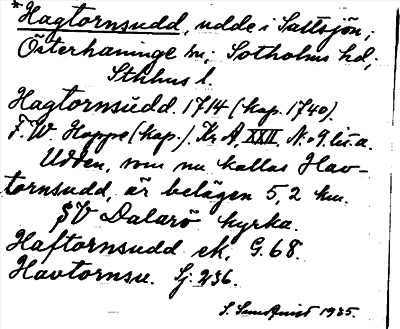 *Hagtornsudd, udde i Saltsjön;
Österhaninge sn; Sotholms hd;
Sthlms l.
Hagtornsudd. 1714 (kop. 1740).
F. W. Hoppe (kop.). Kr A, XXII, N:o 9. lit. a.
Udden, som nu kallas Hav-
tornsudd, är belägen 5,2 km.
SV Dalarö kyrka.
Haftornsudd ek. G. 68.
Havtornsu. Sj. 236.
S. Sundqvist 1935.